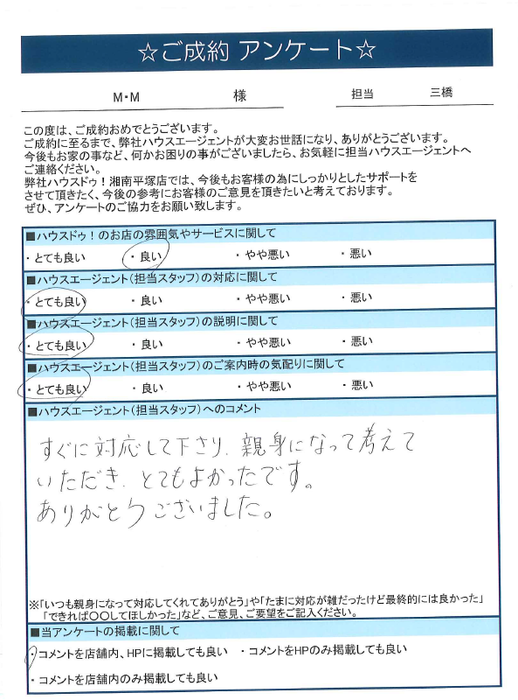 ☆ご成約 アンケート☆
M・M 様 担当 三橋
この度は、ご成約おめでとうございます。
ご成約に至るまで、弊社ハウスエージェントが大変お世話になり、ありがとうございます。
今後もお家の事など、何かお困りの事がございましたら、お気軽に担当ハウスエージェントへ
ご連絡ください。
弊社ハウスドゥ！湘南平塚店では、今後もお客様の為にしっかりとしたサポートを
させて頂きたく、今後の参考にお客様のご意見を頂きたいと考えております。
ぜひ、アンケートのご協力をお願い致します。
■ハウスドゥ！のお店の雰囲気やサービスに関して
・とても良い ・良い ・やや悪い ・悪い
■ハウスエージェント（担当スタッフ）の対応に関して
・とても良い ・良い ・やや悪い ・悪い
■ハウスエージェント（担当スタッフ）の説明に関して
・とても良い ・良い ・やや悪い ・悪い
■ハウスエージェント（担当スタッフ）のご案内時の気配りに関して
・とても良い ・良い ・やや悪い ・悪い
■ハウスエージェント（担当スタッフ）へのコメント
すぐに対応して下さり、親身になって考えて
いただき、とてもよかったです。
ありがとうございました。
※「いつも親身になって対応してくれてありがとう」や「たまに対応が雑だったけど最終的には良かった」
「できれば〇〇してほしかった」など、ご意見、ご要望をご記入ください。
■当アンケートの掲載に関して
・コメントを店舗内、HPに掲載しても良い ・コメントをHPのみ掲載しても良い
・コメントを店舗内のみ掲載しても良い